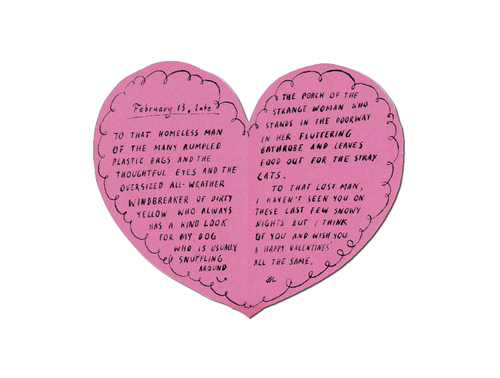 February 13, Late
TO THAT HOMELESS MAN
OF THE MANY RUMPLED
PLASTIC BAGS AND THE
THOUGHTFUL EYES AND THE
OVERSIZED ALL-WEATHER
WINDBREAKER OF DIRTY
YELLOW WHO ALWAYS
HAS A KIND LOOK
FOR MY DOG
WHO IS USUALLY
SNUFFLING
AROUND
THE PORCH OF THE
STRANGE WOMAN WHO
STANDS IN THE DOORWAY
IN HER FLUTTERING
BATHROBE AND LEAVES
FOOD OUT FOR THE STRAY
CATS.
TO THAT LOST MAN,
I HAVEN'T SEEN YOU ON
THESE LAST FEW SNOWY
NIGHTS BUT I THINK
OF YOU AND WISH YOU
A HAPPY VALENTINES'
ALL THE SAME.